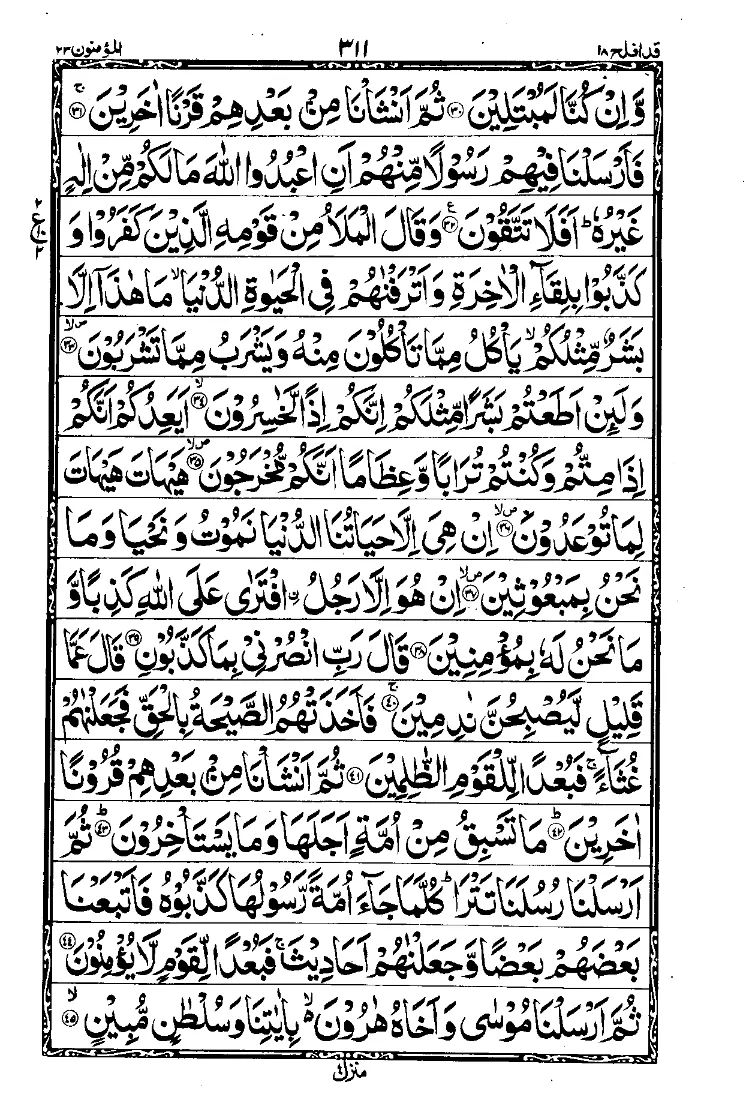 قد افلح ۱۸ ۳۱۱ المؤمنون ۲۳
وَّاِنْ كُنَّا لَمُبْتَلِيْنَ ﴿۳۰﴾ ثُمَّ اَنْشَاْنَا مِنْۢ بَعْدِهِمْ قَرْنًا اٰخَرِيْنَ ۚ ﴿۳۱﴾
فَاَرْسَلْنَا فِيْهِمْ رَسُوْلًا مِّنْهُمْ اَنِ اعْبُدُوا اللّٰهَ مَا لَكُمْ مِّنْ اِلٰهٍ
غَيْرُهٗ ؕ اَفَلَا تَتَّقُوْنَ ﴿۳۲﴾ ع وَقَالَ الْمَلَاُ مِنْ قَوْمِهِ الَّذِيْنَ كَفَرُوْا وَ
۲ ع ۲
كَذَّبُوْا بِلِقَآءِ الْاٰخِرَةِ وَاَتْرَفْنٰهُمْ فِى الْحَيٰوةِ الدُّنْيَا ۙ مَا هٰذَآ اِلَّا
بَشَرٌ مِّثْلُكُمْ ۙ يَاْكُلُ مِمَّا تَاْكُلُوْنَ مِنْهُ وَيَشْرَبُ مِمَّا تَشْرَبُوْنَ ۪ۙ ﴿۳۳﴾
وَلَئِنْ اَطَعْتُمْ بَشَرًا مِّثْلَكُمْ اِنَّكُمْ اِذًا لَّخٰسِرُوْنَ ۙ ﴿۳۴﴾ اَيَعِدُكُمْ اَنَّكُمْ
اِذَا مِتُّمْ وَكُنْتُمْ تُرَابًا وَّعِظَامًا اَنَّكُمْ مُّخْرَجُوْنَ ۪ۙ ﴿۳۵﴾ هَيْهَاتَ هَيْهَاتَ
لِمَا تُوْعَدُوْنَ ۪ۙ ﴿۳۶﴾ اِنْ هِىَ اِلَّا حَيَاتُنَا الدُّنْيَا نَمُوْتُ وَنَحْيَا وَمَا
نَحْنُ بِمَبْعُوْثِيْنَ ۪ۙ ﴿۳۷﴾ اِنْ هُوَ اِلَّا رَجُلُ ۨافْتَرٰى عَلَى اللّٰهِ كَذِبًا وَّ
مَا نَحْنُ لَهٗ بِمُؤْمِنِيْنَ ﴿۳۸﴾ قَالَ رَبِّ انْصُرْنِىْ بِمَا كَذَّبُوْنِ ﴿۳۹﴾ قَالَ عَمَّا
قَلِيْلٍ لَّيُصْبِحُنَّ نٰدِمِيْنَ ۚ ﴿۴۰﴾ فَاَخَذَتْهُمُ الصَّيْحَةُ بِالْحَقِّ فَجَعَلْنٰهُمْ
غُثَآءً ۚ فَبُعْدًا لِّلْقَوْمِ الظّٰلِمِيْنَ ﴿۴۱﴾ ثُمَّ اَنْشَاْنَا مِنْۢ بَعْدِهِمْ قُرُوْنًا
اٰخَرِيْنَ ؕ ﴿۴۲﴾ مَا تَسْبِقُ مِنْ اُمَّةٍ اَجَلَهَا وَمَا يَسْتَاْخِرُوْنَ ؕ ﴿۴۳﴾ ثُمَّ
اَرْسَلْنَا رُسُلَنَا تَتْرَا ؕ كُلَّمَا جَآءَ اُمَّةً رَّسُوْلُهَا كَذَّبُوْهُ فَاَتْبَعْنَا
بَعْضَهُمْ بَعْضًا وَّجَعَلْنٰهُمْ اَحَادِيْثَ ۚ فَبُعْدًا لِّقَوْمٍ لَّا يُؤْمِنُوْنَ ﴿۴۴﴾
ثُمَّ اَرْسَلْنَا مُوْسٰى وَاَخَاهُ هٰرُوْنَ ۙ۬ بِاٰيٰتِنَا وَسُلْطٰنٍ مُّبِيْنٍ ۙ ﴿۴۵﴾
منزل ۴